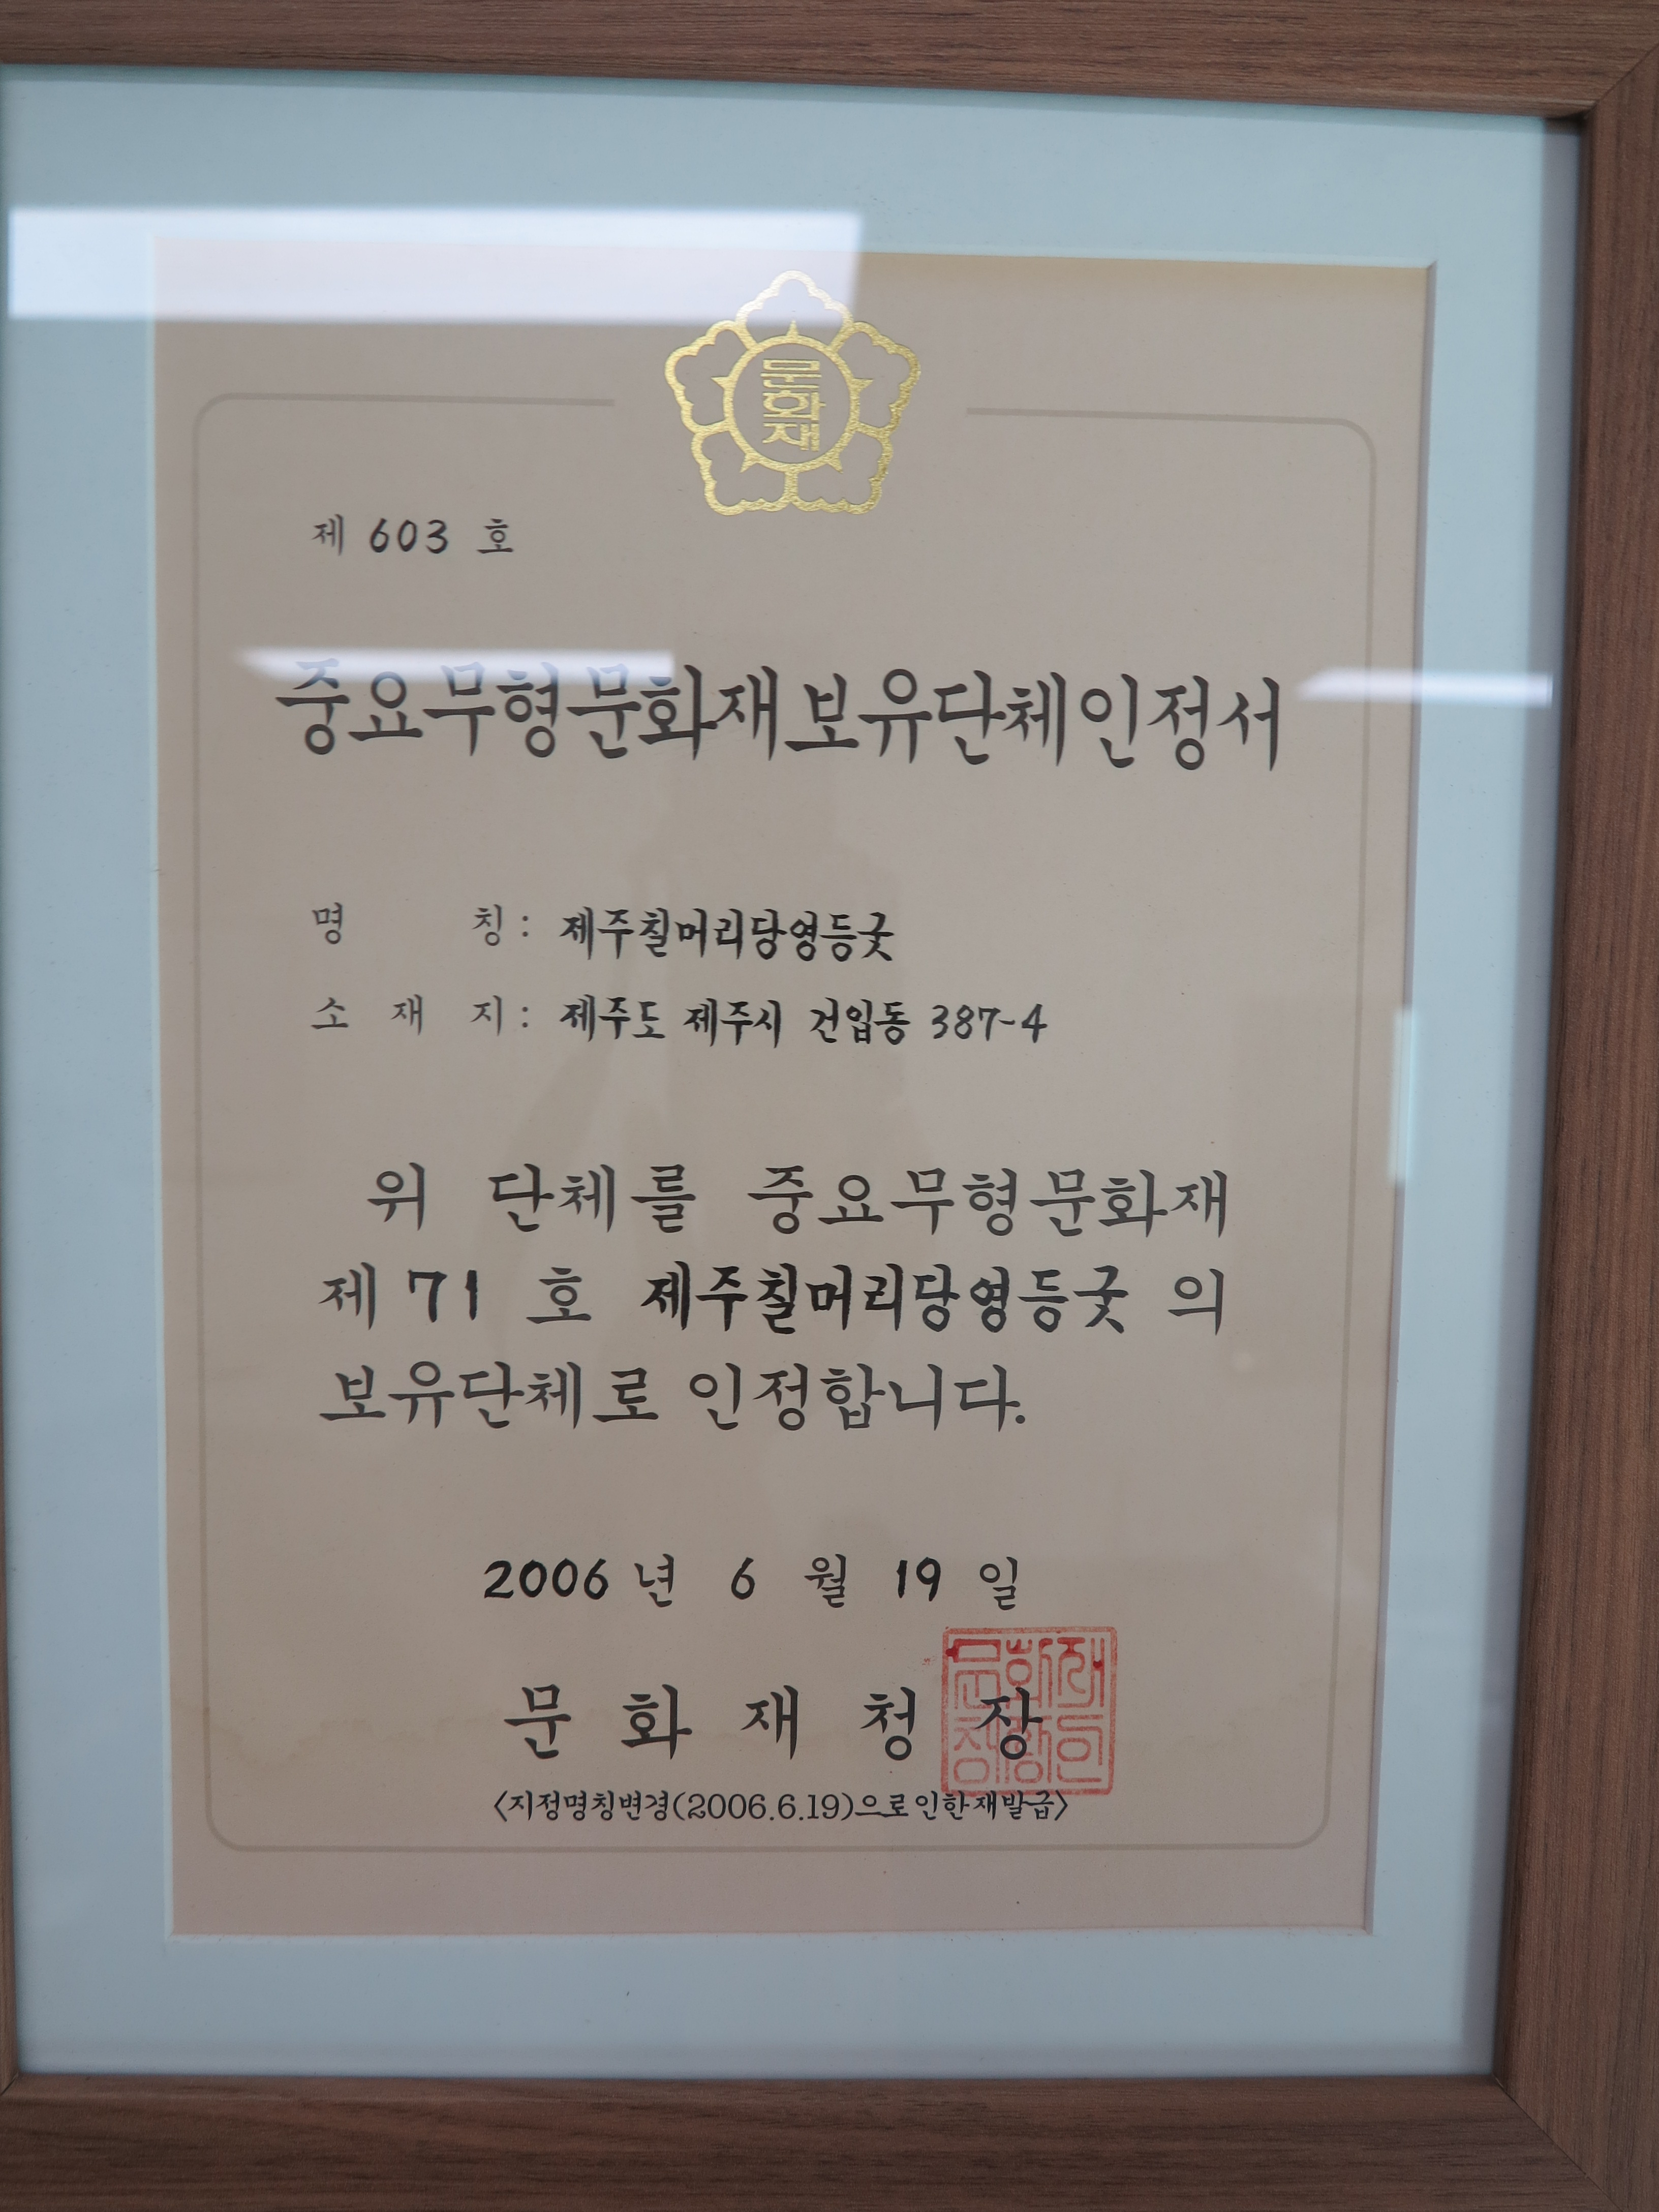 문
화
재
제 603 호
중요무형문화재보유단체인정서
명 칭 : 제주칠머리당영등굿
소 재 지 : 제주도 제주시 건입동 387-4
위 단체를 중요무형문화재
제 71 호 제주칠머리당영등굿 의
보유단체로 인정합니다.
2006 년 6 월 19 일
문 화 재 청 장
문화재
청장인
<지정명칭변경(2006.6.19)으로인한재발급>